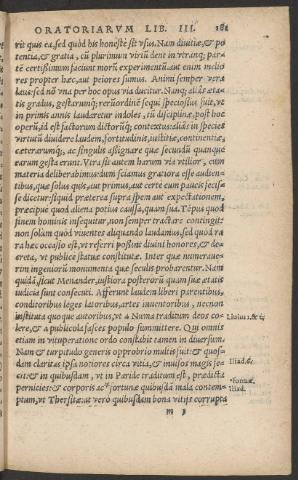 ORATORIARVM LIB. III. 181
rit quis ea, sed quòd his honestè sit vsus. Nam diuitiæ, & po
tentia, & gratia, cũ plurimum virium dent in vtranq; par=
tẽ certissimum faciunt morũ experimentũ. aut enim melio
res propter hæc, aut peiores sumus. Animi semper vera
laus: sed nõ vna per hoc opus via ducitur. Nanq; aliàs æta=
tis gradus, gestarumq; rerũ ordinẽ sequi speciosius fuit, vt
in primis annis laudaretur indoles, tũ disciplinæ, post hoc
operũ, id est factorum dictorũq; contextus. aliàs in species
virtutũ diuidere laudem, fortitudinis, iustitiæ, continentiæ,
cæterarumq;, ac singulis assignare quæ secundũ quanque
earum gesta erunt. Vtra sit autem harum via vtilior, cum
materia deliberabimus: dum sciamus gratiora esse audien=
tibus, quæ solus quis, aut primus, aut certe cum paucis fecis=
se dicetur: siquid præterea supra spem aut expectationem,
præcipuè quod aliena potius caussa, quam sua. Tẽpus quod
finem hominis insequitur, non semper tractare contingit:
non solùm quòd viuentes aliquando laudamus, sed quòd ra
ra hæc occasio est, vt referri possint diuini honores, & de=
creta, vt publicè statuæ constitutæ. Inter quæ numerauerim
rim ingeniorũ monumenta quæ seculis probarentur. Nam
quidã, sicut Menander, iustiora posterorũ quàm suæ ætatis
iudicia sunt consecuti. Afferunt laudem liberi parentibus,
conditoribus leges latoribus, artes inuentoribus, necnon
instituta quoque autoribus, vt à Numa traditum deos co=
lere, & à publicola fasces populo summittere. Qui omnis
etiam in vituperatione ordo constabit tamen in diuersum.
Nam & turpitudo generis opprobrio multis fuit: & quos=
dam claritas ipsa notiores circa vitia, & inuisos magis fe=
cit: & in quibusdam, vt in Paride traditum est, prædicta
pernicies: & corporis ac fortunæ quibusdã mala contem=
ptum, vt Thersitæ: at verò quibusdam bona vitijs corrupta
Liuius 1. & ij
Iliad.
fortunæ,
Iliad.
m j